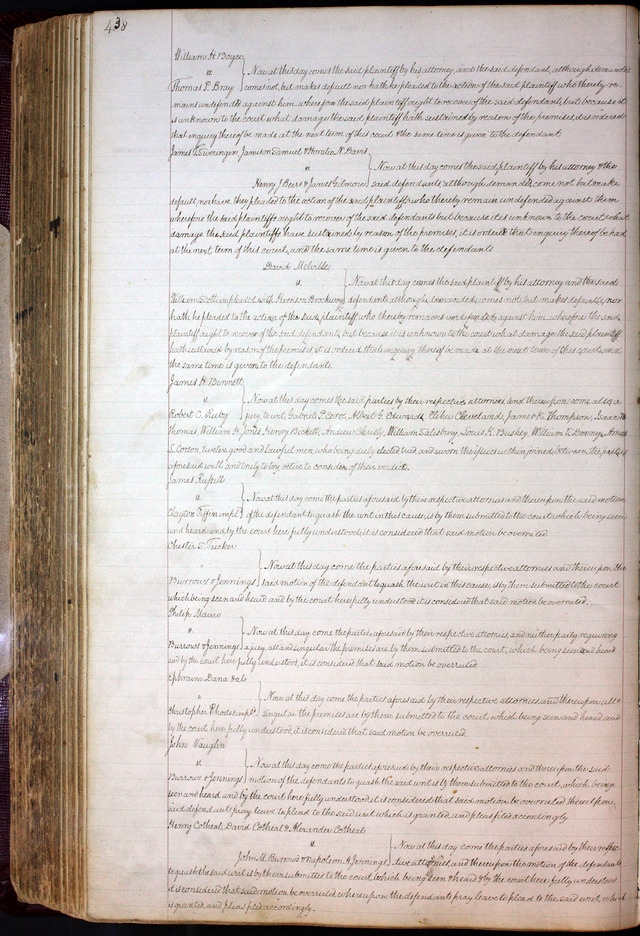 438
William H. Boyce
vs
Now at this day comes the said plaintiff by his attorney, and the said defendant, although demanded
Thomas P. Bray comes not, but makes default nor hath he pleaded to the action of the said plaintiff who thereby re-
mains undefended against him. wherefore the said plaintiff ought to recover of the said defendant, but because it
is unknown to the court what damage the said plaintiff hath sustained by reason of the premises, it is ordered
that enquiry thereof be made at the next term of this court & the same time is given to the defendant
James Swearingen Jamison Samuel & Horatio N. Davis
Now at this day comes the said plaintiff by his attorney & the
vs
Henry J Beers & James Gilmore said defendants although demanded, come not but make
default, nor have they pleaded to the action of the said plaintiffs, who thereby remain undefended against them
wherefore the said plaintiffs ought to recover of the said defendants but because it is unknown to the court what
damage the said plaintiffs have sustained by reason of the premises, it is ordered that enquiry thereof be had
at the next term of this court, and the same time is given to the defendants
David Melville
Now at this day comes the said plaintiff by his attorney and the said
vs
William Scott impleaded with Harrison Brockway defendants although demanded, comes not but makes default, nor
hath he pleaded to the action of the said plaintiff who thereby remains undefended against him wherefore the said
plaintiff ought to recover of the said defendant, but because it is unknown to the court what damage the said plaintiff
hath sustained by reason of the premises it is ordered that enquiry thereof be made at the next term of this court and
the same time is given to the defendants.
James H. Bennett
vs
Now at this day comes the said parties by their respective attornies and thereupon come also a
Robert C. jury, to wit, Gabriel Albert G. Edwards, Elihu Cleveland, James K. Thompson, Isaac
Thomas, William H. Jones, Henry Bickett, Andrew Christy, William Salisbury, Louis K. Bushey, William S. Denny, Amos
Corson, twelve good and lawful men, who being duly elected tried and sworn the issues within joined, between the parties
aforesaid well and truly to try retire to consider of their verdict.
James Russell
vs
Now at this day come the parties aforesaid by their respective attornies and thereupon the said motion
Clayton Tiffin impl'd of the defendant to quash the writ in this cause, is by them submitted to the court which being seen
and heard and by the court here fully understood it is considered that said motion be overruled.
Chester Tucker
vs
Now at this day come the parties aforesaid by their respective attornies and thereupon the
Burrows & Jennings said motion of the defendant to quash the writ in this cause, is by them submitted to the court
which being seen and heard and by the court here fully understood it is considered that said motion be overruled.
Philip Mauro
vs
Now at this day, come the parties, aforesaid by their respective attornies, and neither party requiring
Burrows & Jennings a jury, all and singular the premises are by them submitted to the court, which being seen and heard
and by the court here fully understood, it is considered that said motion be overruled.
Ephraim Dana & als
vs
Now at this day come the parties aforesaid by their respective attornies and thereupon all &
Christopher Rhodes impl'd singular the premises are by them submitted to the court which being seen and heard and
by the court here fully understood, it is considered that said motion be overruled
John Vaughn
vs
Now at this day come the parties aforesaid by their respective attornies and thereupon the said
Burrows & Jennings motion of the defendants to quash the said writ is by them submitted to the court, which being
seen and heard and by the court here fully understood it is considered that said motion be overruled thereupon
said defendants pray leave to plead to the said writ which is granted, and pleas filed accordingly
Henry Cotheal, David Cotheal & Alexander Cotheal
vs
Now at this day come the parties aforesaid by their respec
John M. Burrows & Napoleon A. Jennings tive attornies and thereupon the motion of the defendants
to quash the said writ is by them submitted to the court, which being seen & heard & by the court here fully understood
it is considered that said motion be overruled whereupon the defendants pray leave to plead to the said writ, which
is granted, and pleas filed accordingly.